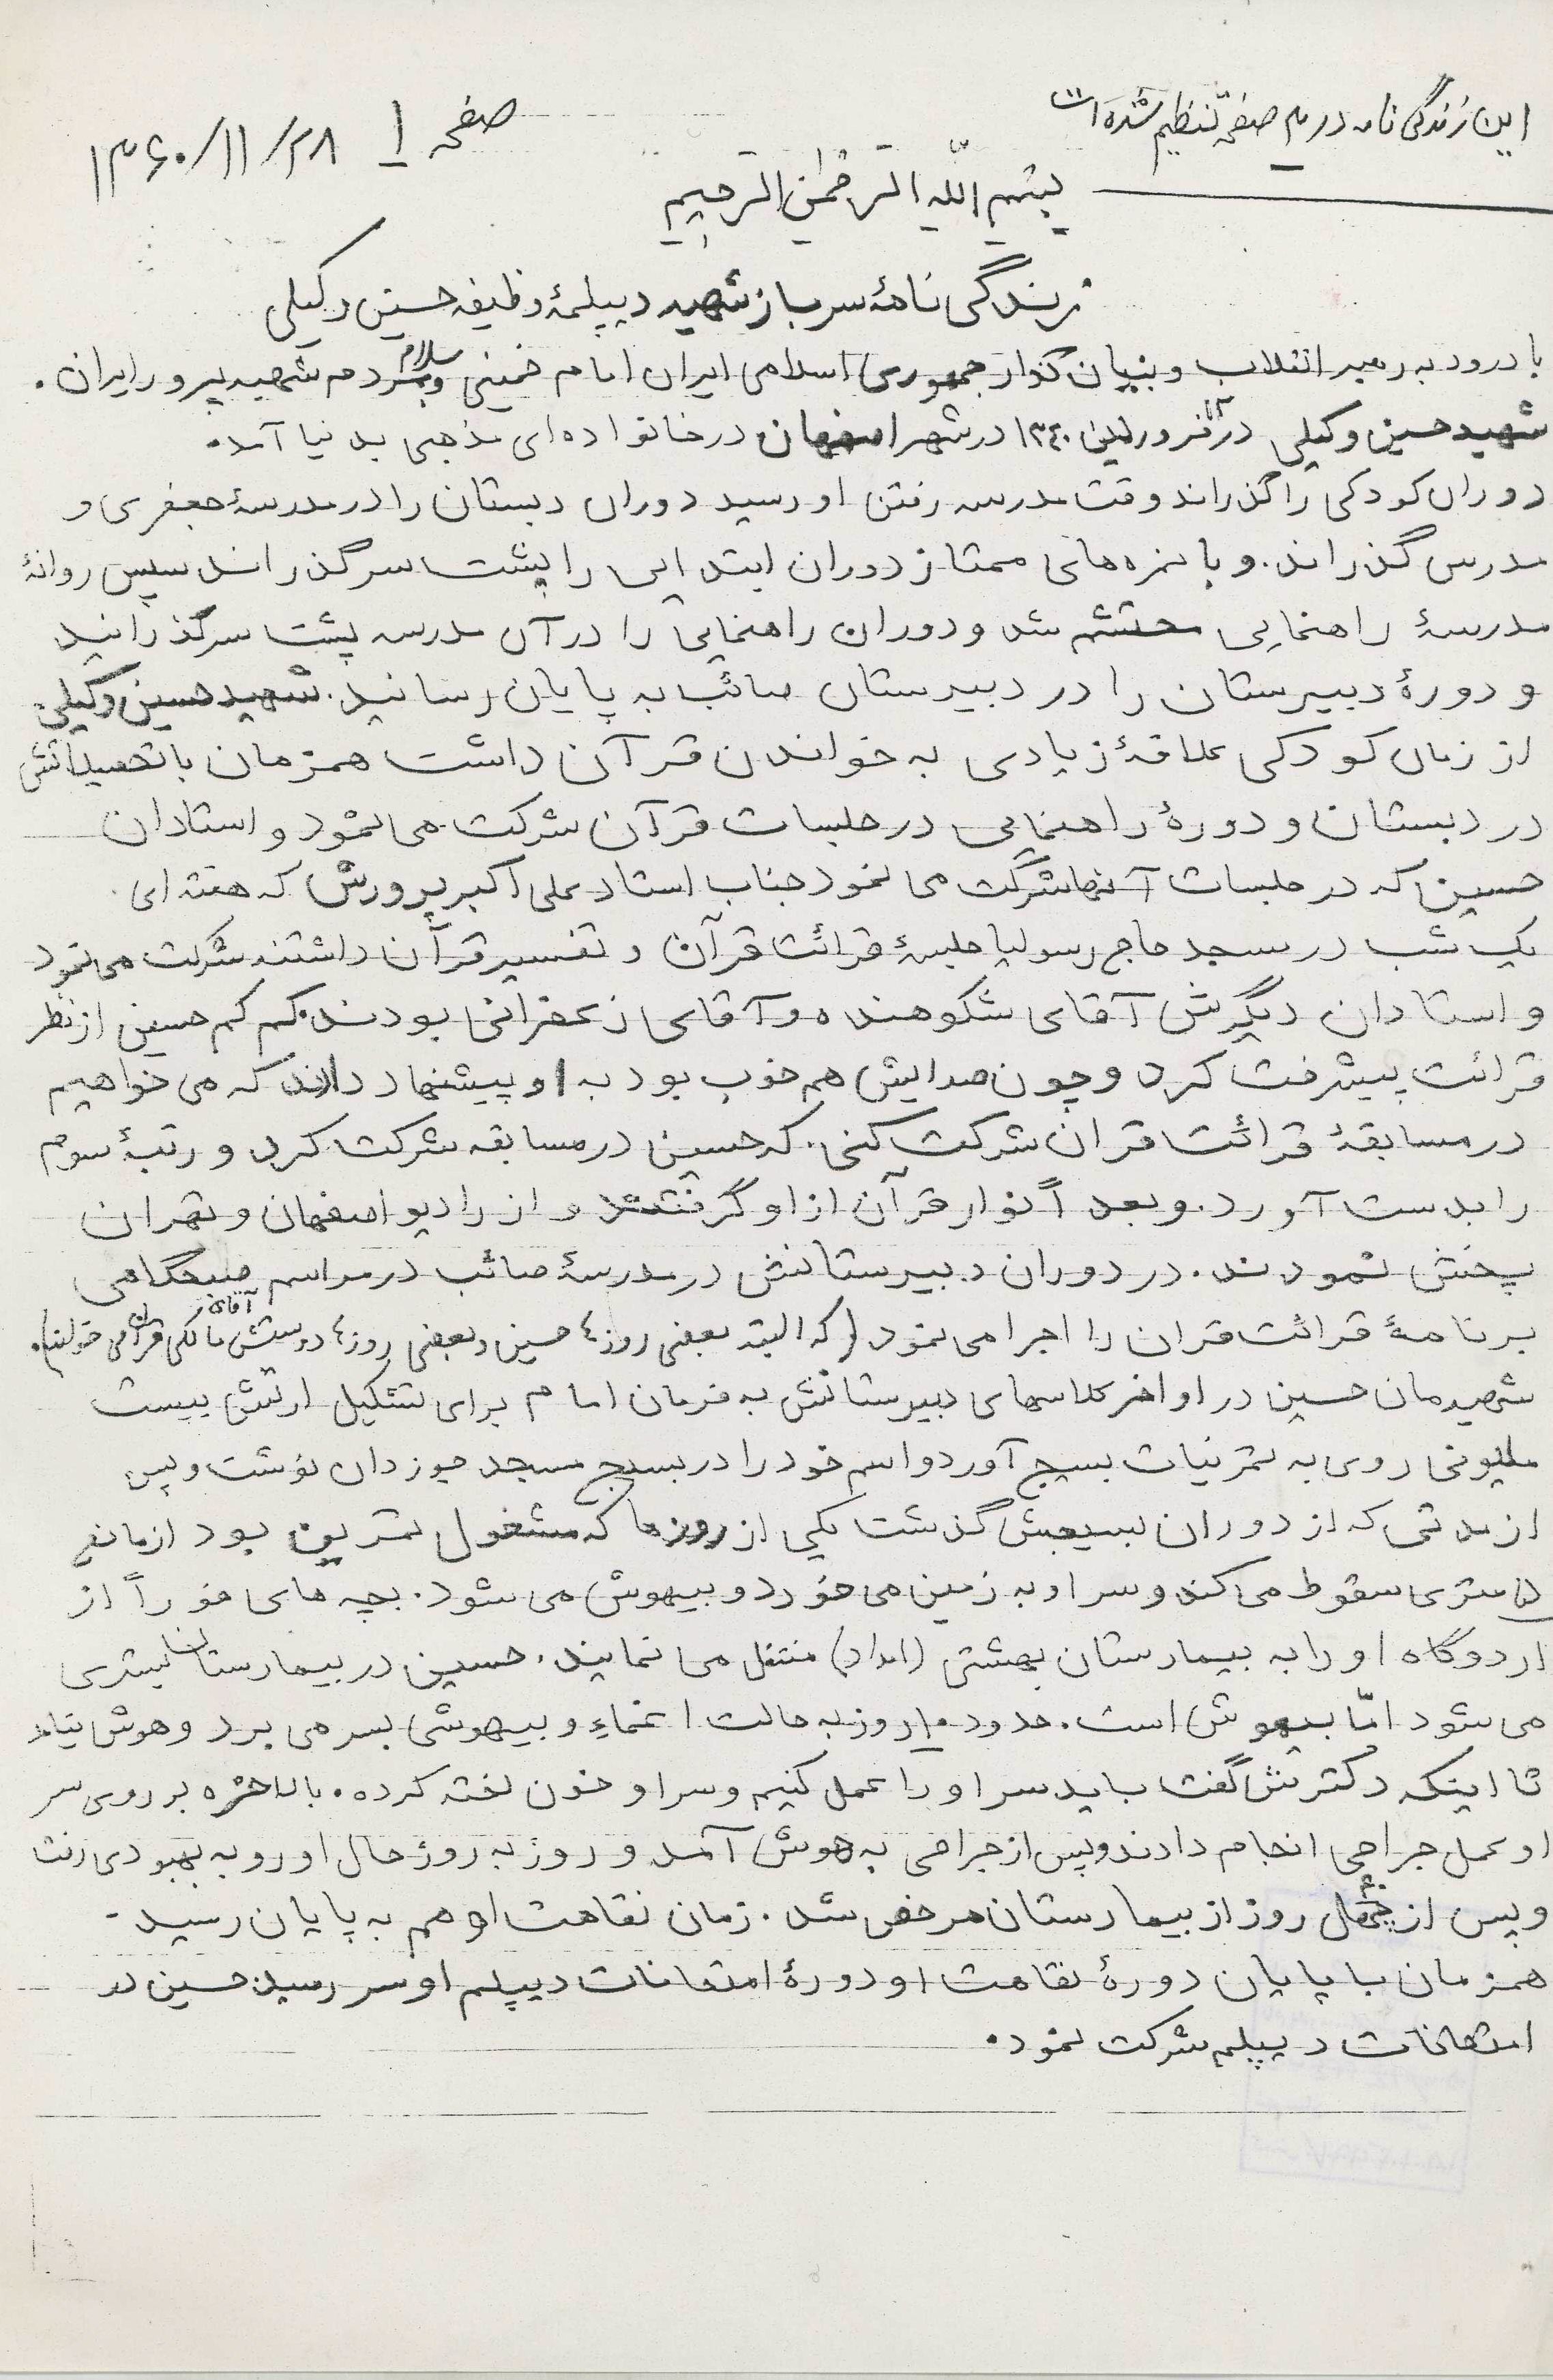 این زندگی نامه در ۳ صفحه تنظیم شده است
صفحه ۱ ۱۳۶۰/۱۱/۲۸
بِسْمِ اللّهِ الرَّحْمٰنِ الرَّحیمِ
زندگی نامهٔ سرباز شهید دیپلمهٔ وظیفه حسین وکیلی
با درود به رهبر انقلاب و بنیان گذار جمهوری اسلامی ایران امام خمینی و سلام بمردم شهید پرور ایران.
شهید حسین وکیلی در فروردین ۱۳۴۰ در شهر اصفهان در خانواده‌ای مذهبی بدنیا آمد.
دوران کودکی را گذراند وقت مدرسه رفتن او رسید دوران دبستان را در مدرسهٔ جعفری و
مدرس گذراند. و با نمره‌های ممتاز دوران ابتدایی را پشت سر گذراند سپس روانهٔ
مدرسهٔ راهنمایی محتشم شد و دوران راهنمایی را در آن مدرسه پشت سر گذرانید
و دورهٔ دبیرستان را در دبیرستان صائب به پایان رسانید. شهید حسین وکیلی
از زمان کودکی علاقهٔ زیادی به خواندن قرآن داشت همزمان با تحصیلاتش
در دبستان و دورهٔ راهنمایی در جلسات قرآن شرکت می نمود و استادان
حسین که در جلسات آنها شرکت می نمود جناب استاد علی اکبر پرورش که هفته‌ای
یک شب در مسجد حاج رسولیا جلسهٔ قرائت قرآن و تفسیر قرآن داشتند شرکت می نمود
و استادان دیگرش آقای شکوهنده و آقای زعفرانی بودند. کم کم حسین از نظر
قرائت پیشرفت کرد و چون صدایش هم خوب بود به او پیشنهاد دادند که می خواهیم
در مسابقهٔ قرائت قران شرکت کنی. که حسین در مسابقه شرکت کرد و رتبهٔ سوم
را بدست آورد. و بعداً نوار قرآن از او گرفتند و از رادیو اصفهان و تهران
پخش نمودند. در دوران دبیرستانش در مدرسهٔ صائب در مراسم صبحگاهی
برنامهٔ قرائت قران را اجرا می نمود (که البته بعضی روزها حسین و بعضی روزها دوستش آقای مالکی قرآن می خواند).
شهیدمان حسین در اواخر کلاسهای دبیرستانش به فرمان امام برای تشکیل ارتش بیست
ملیونی روی به تمرینات بسیج آورد و اسم خود را در بسیج مسجد جوزدان نوشت و پس
از مدتی که از دوران بسیجش گذشت یکی از روزها که مشغول تمرین بود از مانع
۵ متری سقوط می کند و سر او به زمین می خورد و بیهوش می شود. بچه های فوراً از
اردوگاه او را به بیمارستان بهشتی (امداد) منتقل می نمایند. حسین در بیمارستان بستری
می شود امّا بیهوش است. حدود ۱۰ روز به حالت اغماء و بیهوشی بسر می برد و هوش نیامد
تا اینکه دکترش گفت باید سر او را عمل کنیم و سر او خون لخته کرده. بالاخره بر روی سر
او عمل جراحی انجام دادند و پس از جراحی به هوش آمد و روز به روز حال او رو به بهبودی رفت
و پس از چهل روز از بیمارستان مرخص شد. زمان نقاهت او هم به پایان رسید.
همزمان با پایان دورهٔ نقاهت او دورهٔ امتحانات دیپلم او سر رسید حسین در
امتحانات دیپلم شرکت نمود.